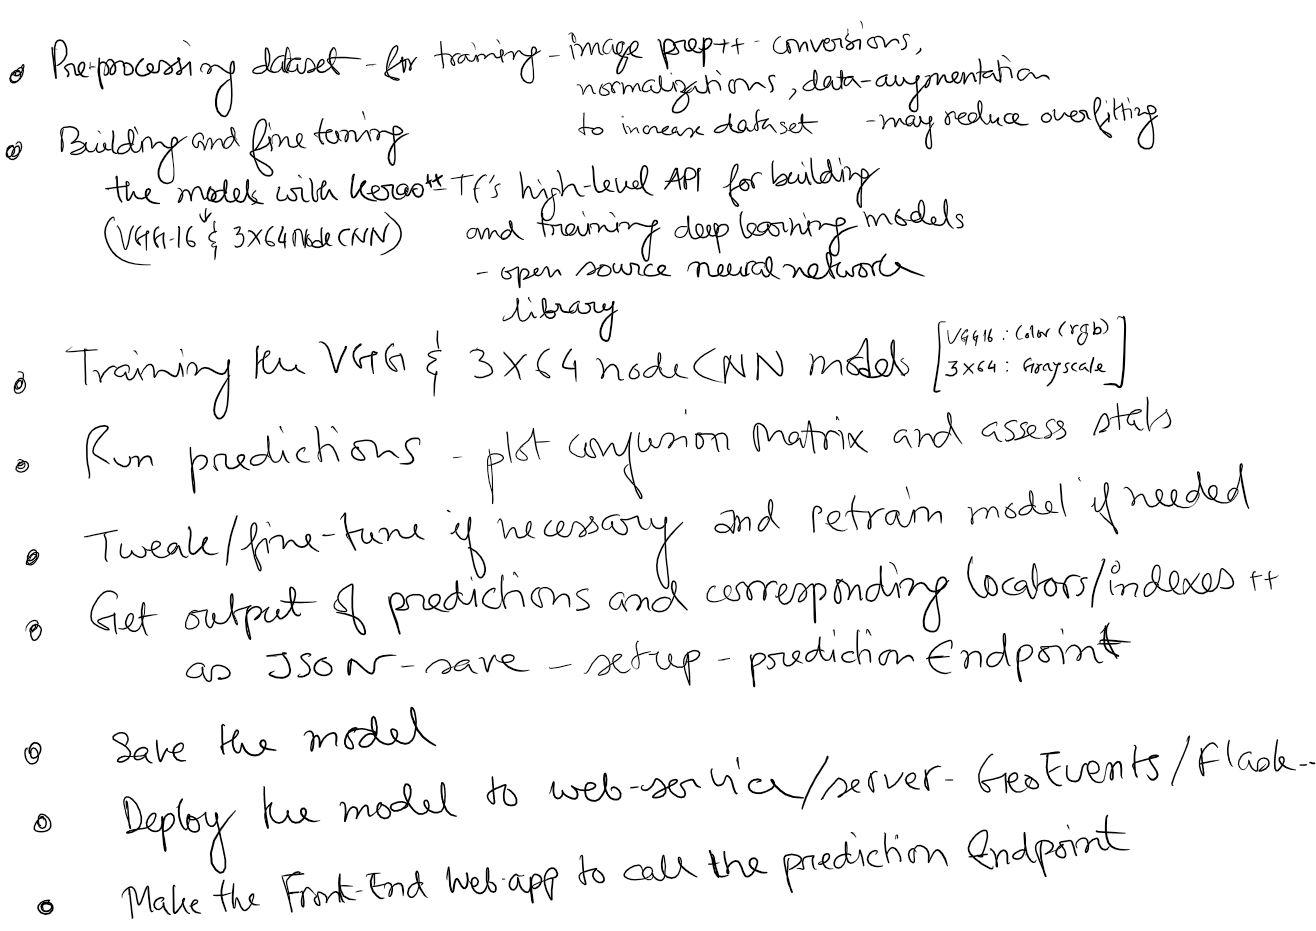 Pre-processing dataset - for training - image prep++ - conversions,
normalizations, data-augmentation
to increase dataset - may reduce overfitting
Building and fine tuning
the models with Keras++ - Tf's high-level API for building
(VGG-16 & 3X64 node CNN) and training deep learning models
- open source neural network
library
Training the VGG & 3X64 node CNN models [VGG16 : Color (rgb)
3x64 : Grayscale]
Run predictions - plot confusion matrix and assess stats
Tweak/fine-tune if necessary and retrain model if needed
Get output of predictions and corresponding locators/indexes ++
as JSON - save - setup - prediction Endpoint
Save the model
Deploy the model to web-service/server - GeoEvents/Flask--
Make the Front-End Web-app to call the prediction Endpoint